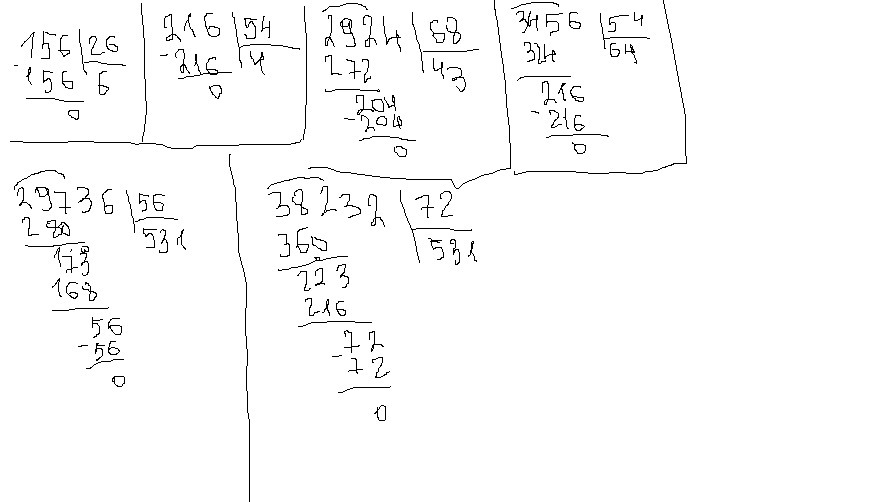 156 26
-156 6
0
216 54
-216 4
0
2924 68
272 43
204
-204
0
3456 54
324 64
216
-216
0
29736 56
280 531
173
168
56
-56
0
38232 72
360 531
223
216
72
-72
0